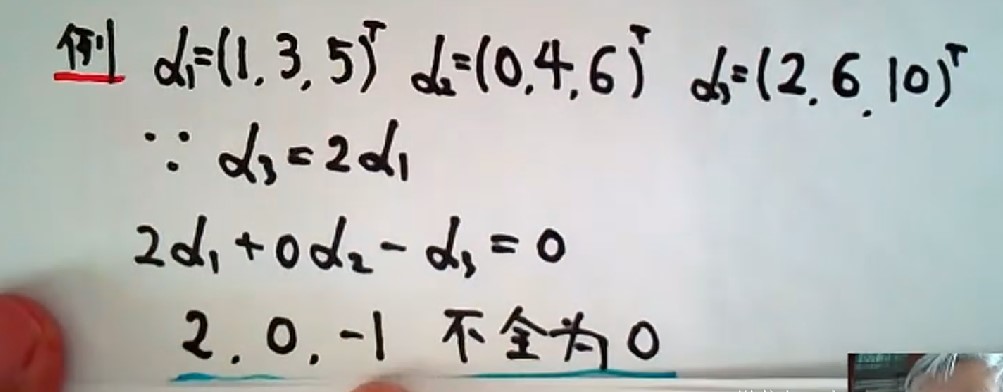 例 α₁=(1,3,5)ᵀ α₂=(0,4,6)ᵀ α₃=(2,6,10)ᵀ
∵ α₃=2α₁
2α₁+0α₂-α₃=0
2,0,-1 不全为0